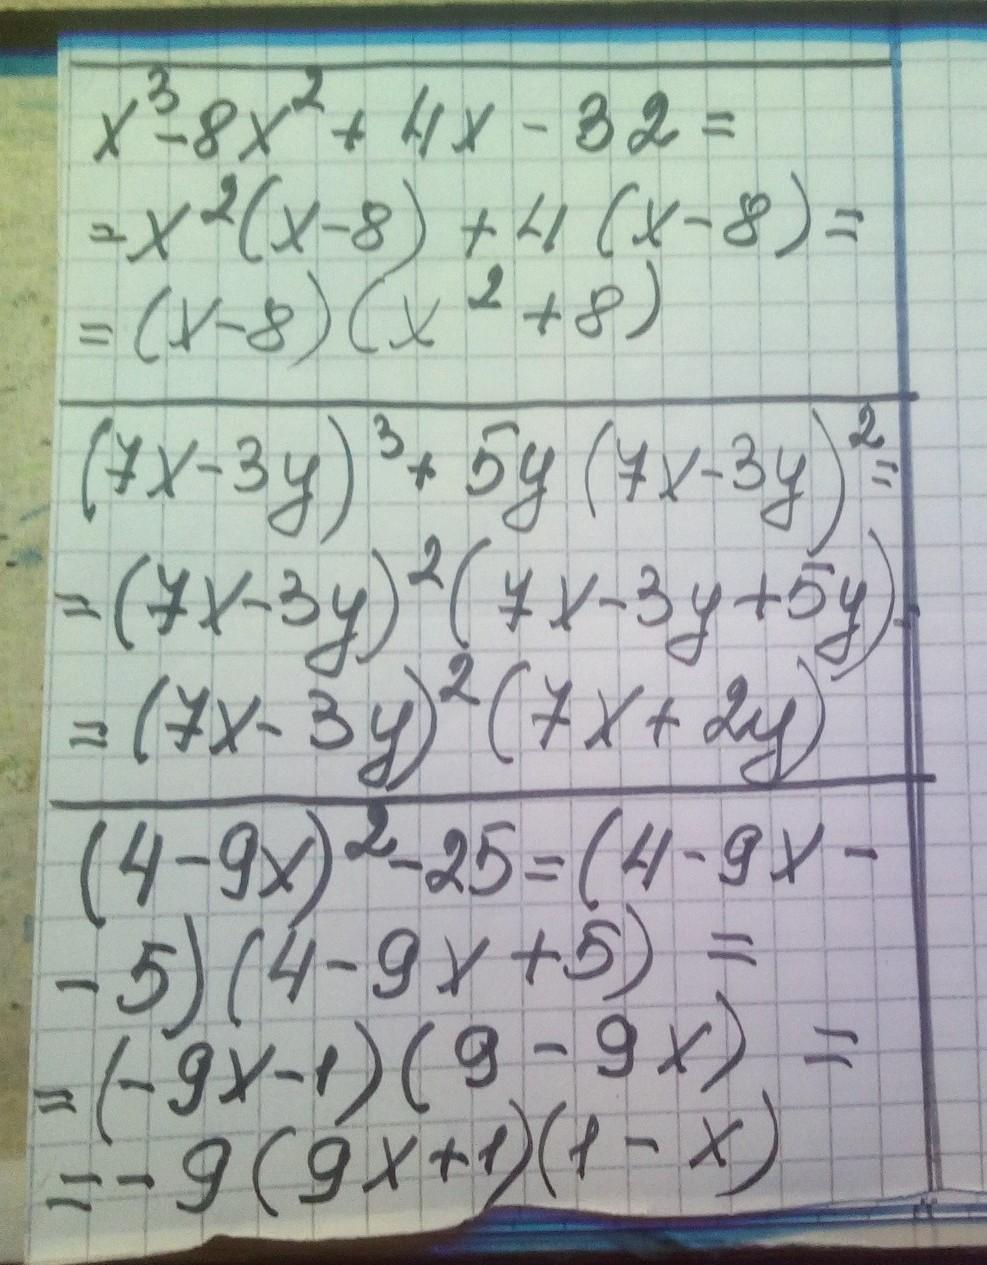 x³-8x²+4x-32=
=x²(x-8)+4(x-8)=
=(x-8)(x²+8)
(7x-3y)³+5y(7x-3y)²=
=(7x-3y)²(7x-3y+5y)=
=(7x-3y)²(7x+2y)
(4-9x)²-25=(4-9x-
-5)(4-9x+5)=
=(-9x-1)(9-9x)=
=-9(9x+1)(1-x)